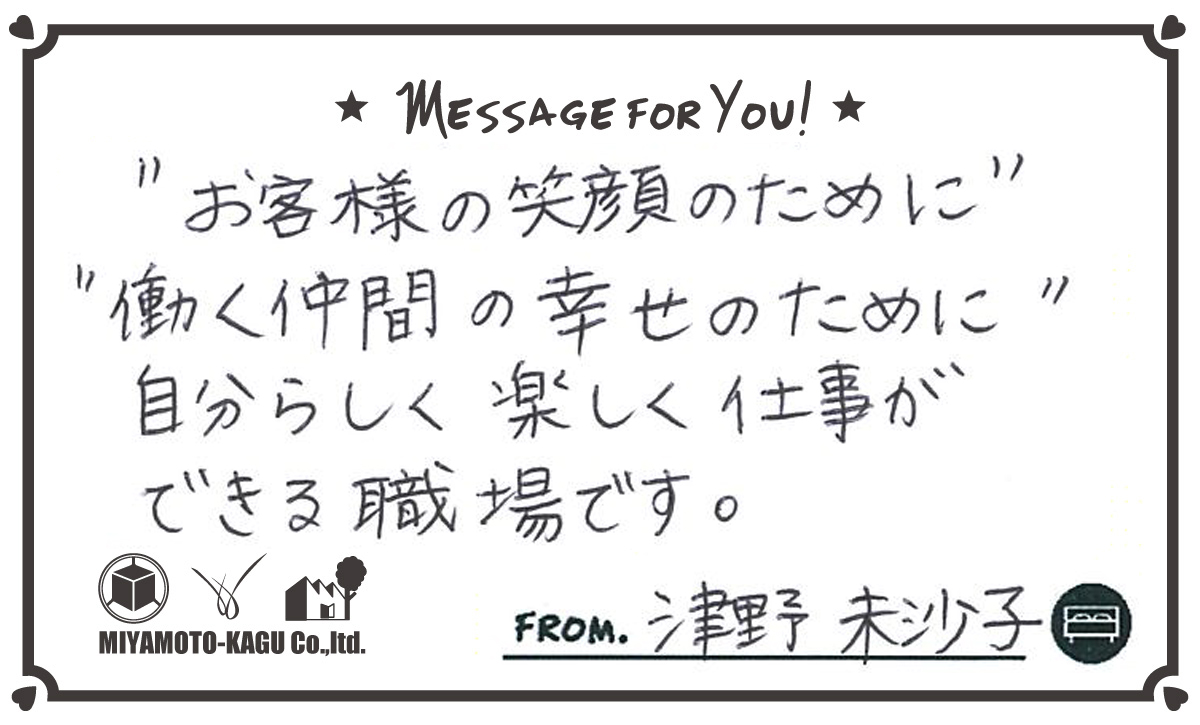 ★ MESSAGE FOR YOU! ★
"お客様の笑顔のために"
"働く仲間の幸せのために"
自分らしく 楽しく 仕事が
できる職場です。
MIYAMOTO-KAGU Co.,ltd.
FROM. 津野 未沙子